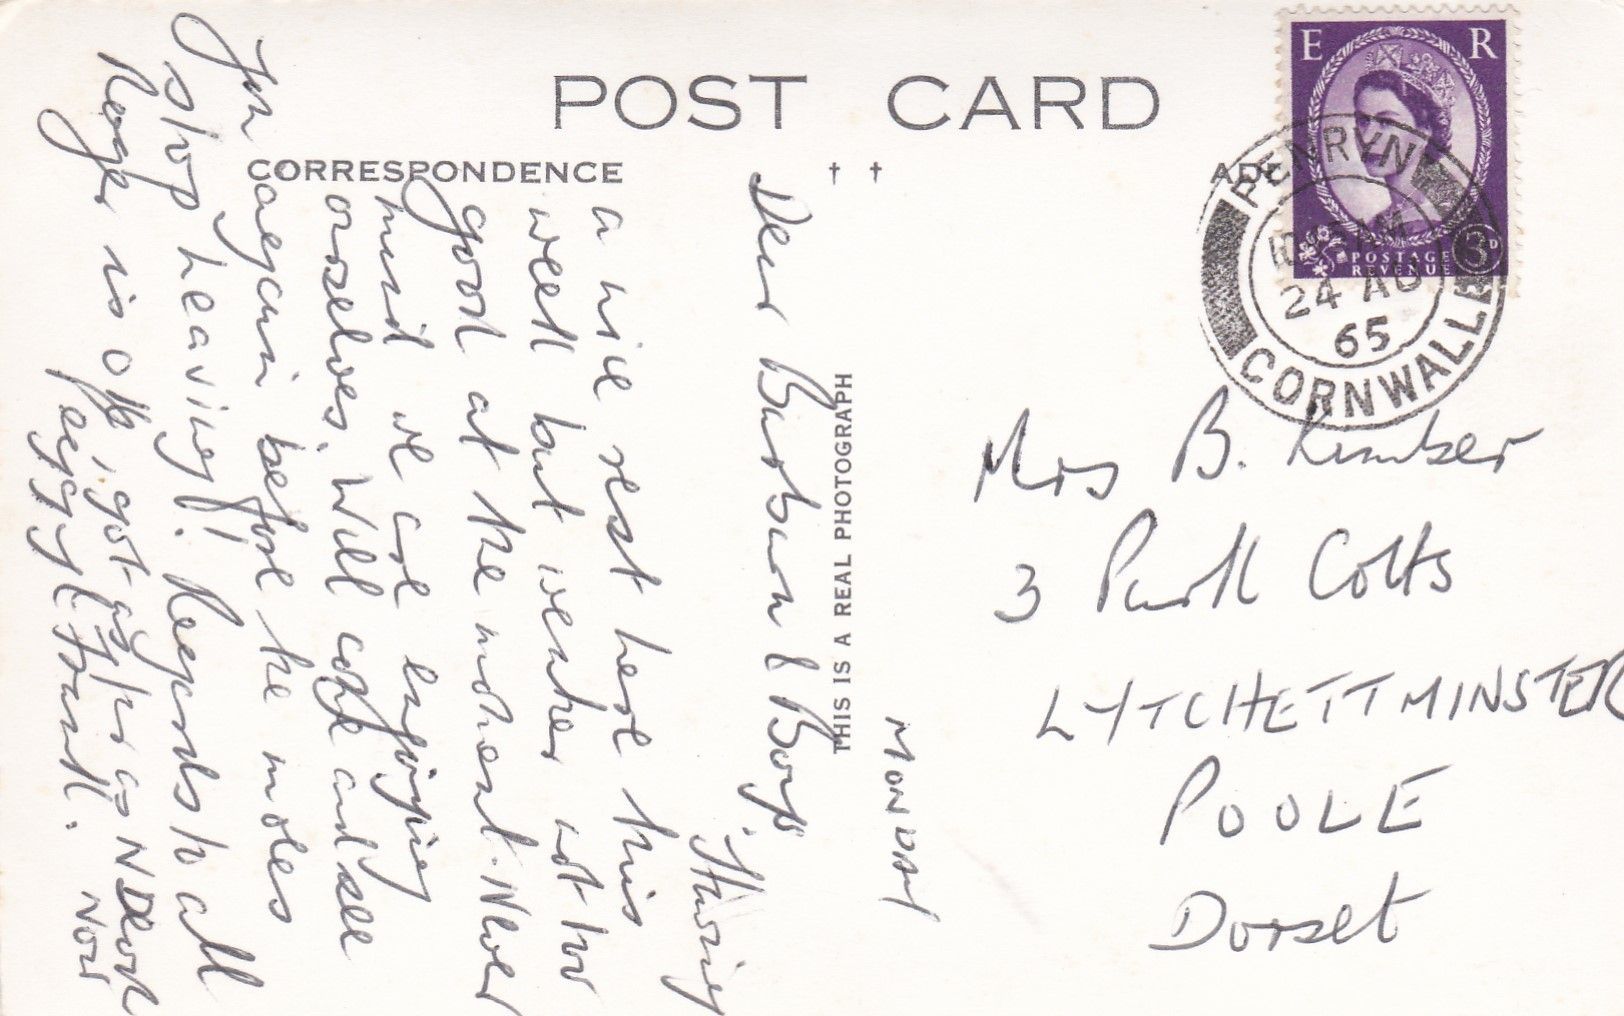 POST CARD
CORRESPONDENCE
E R
POSTAGE
REVENUE
3D
PENRYN
AM
24 AU
65
CORNWALL
THIS IS A REAL PHOTOGRAPH
MONDAY
Dear Barbara & Boys,
Having
a nice rest here this
week but weather not too
good at the moment. Never
mind we are enjoying
ourselves. Will come and see
you again before the moles
stop heaving! Regards to all
Roger is off, got as far as N Devon
Now
Peggy & Frank.
Mrs B. Kimber
3 Park Cotts
LYTCHETT MINSTER
POOLE
Dorset